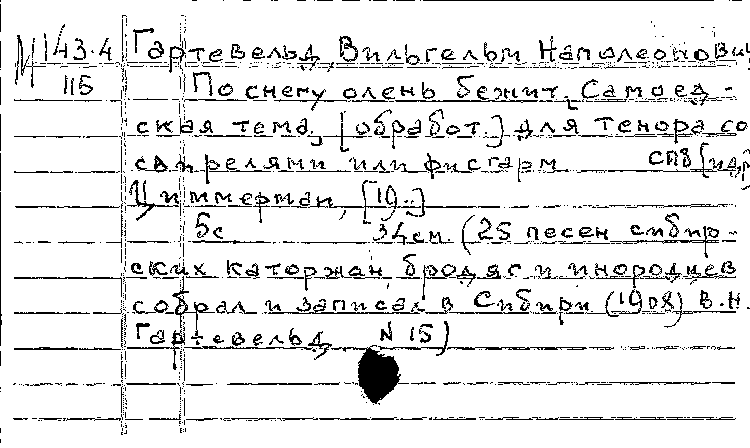 М 143.4 Гартевельд, Вильгельм Наполеонович
115 По снегу олень бежит. Самоед-
ская тема, [обработ.] для тенора со
свирелями или фисгарм СПб [и др]
Циммерман, [19..]
5с 34см. (25 песен сибир-
ских каторжан, бродяг и инородцев
собрал и записал в Сибири (1908) В.Н.
Гартевельд. N 15)